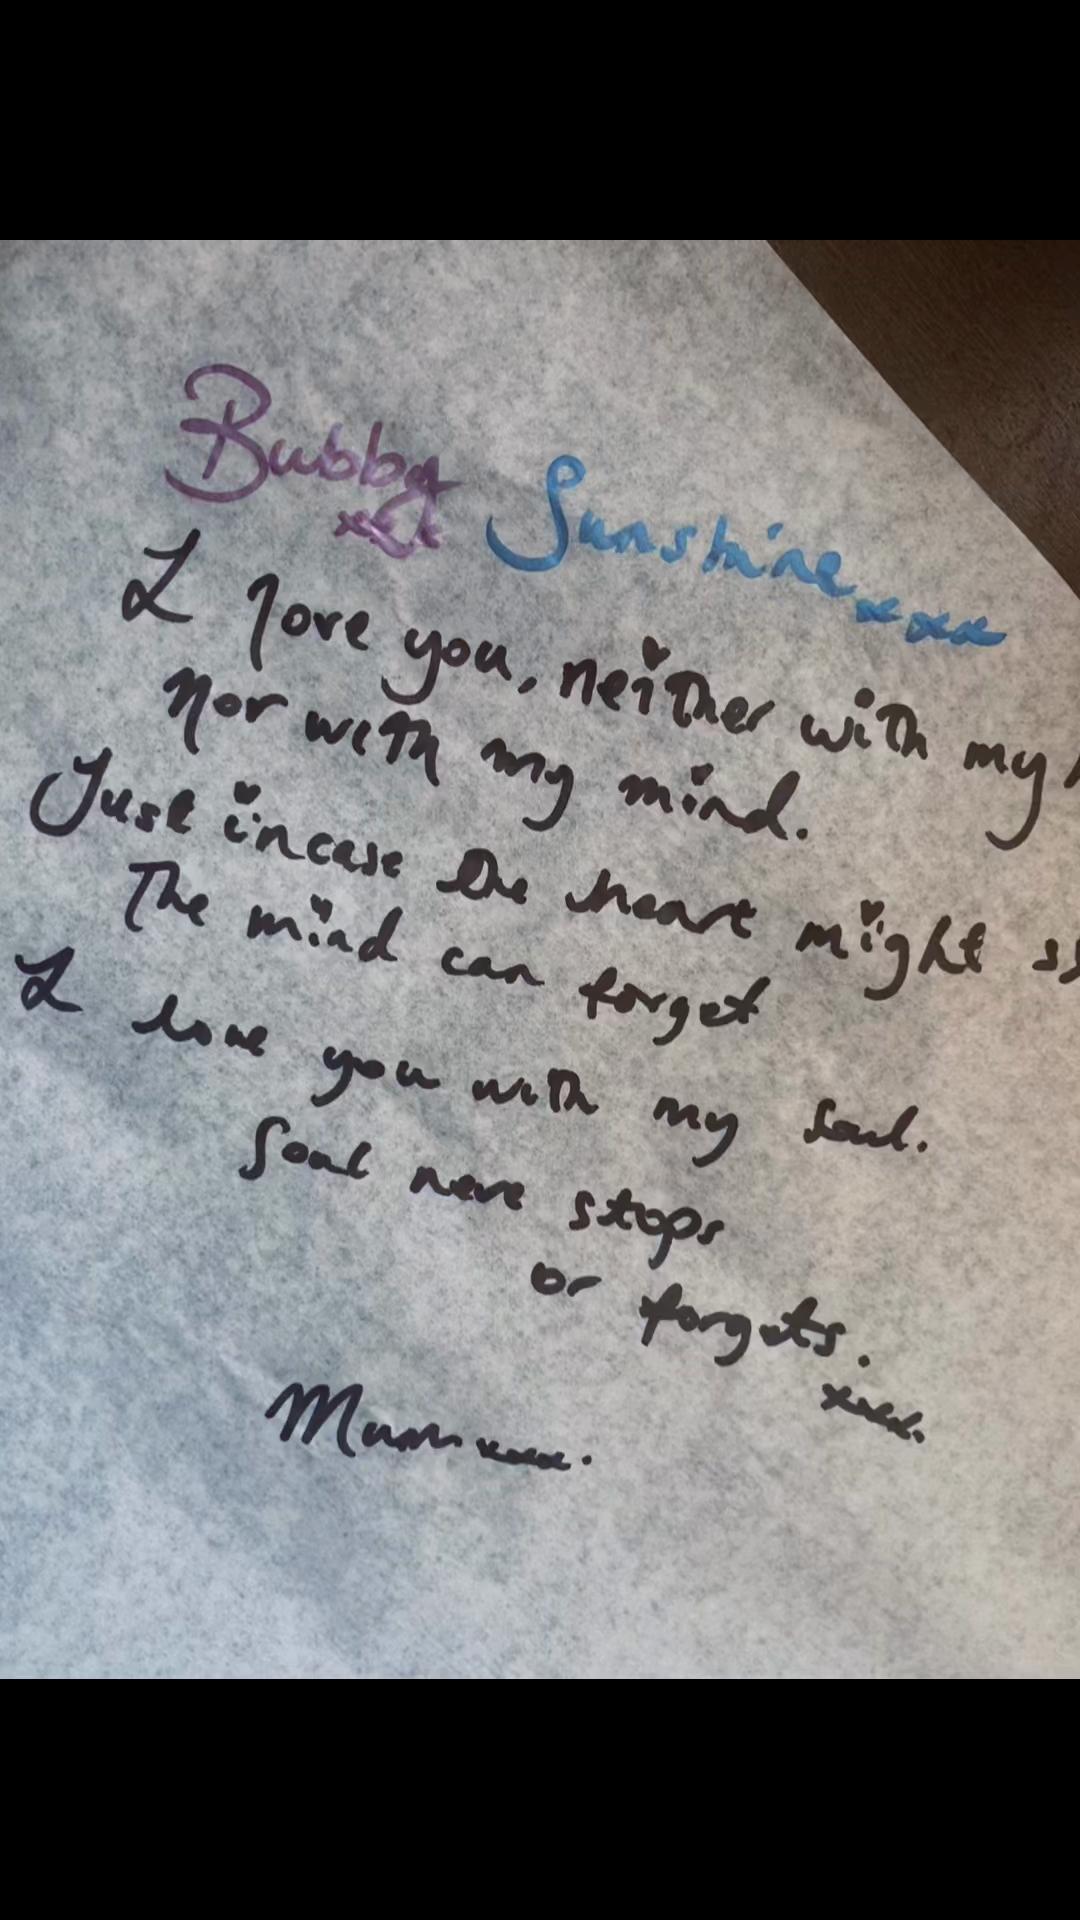 Bubby Sunshine xxxx
xxx
I love you, neither with my
Nor with my mind.
Just incase the heart might
The mind can forget
I love you with my soul.
Soul neve stops
or forgets.
xxxx.
Mum xxxx.